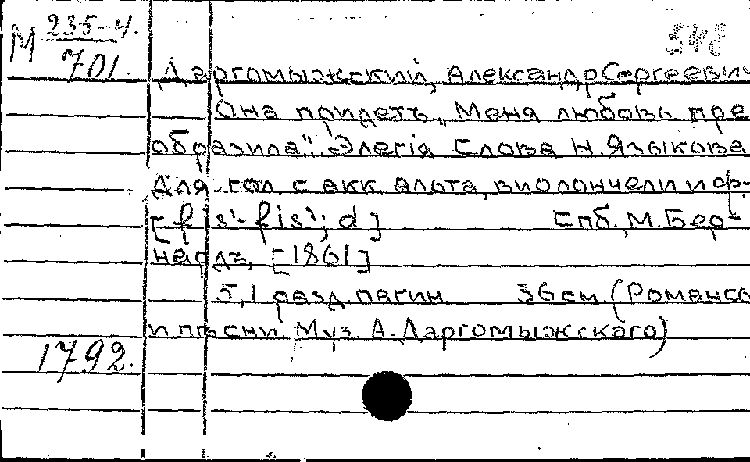 М 235-4.
701.
548
Даргомыжский, Александр Сергеевич
"Она придетъ, "Меня любовь пре-
образила". Элегія. Слова Н. Языкова
Для гол. с акк. альта, виолончели и ф-
[fis'-fis²; d] Спб., М. Бер-
нардъ, [1861]
5, 1 разд. пагин. 36 см. (Романсы
и пѣсни Муз. А. Даргомыжскаго)
1792.